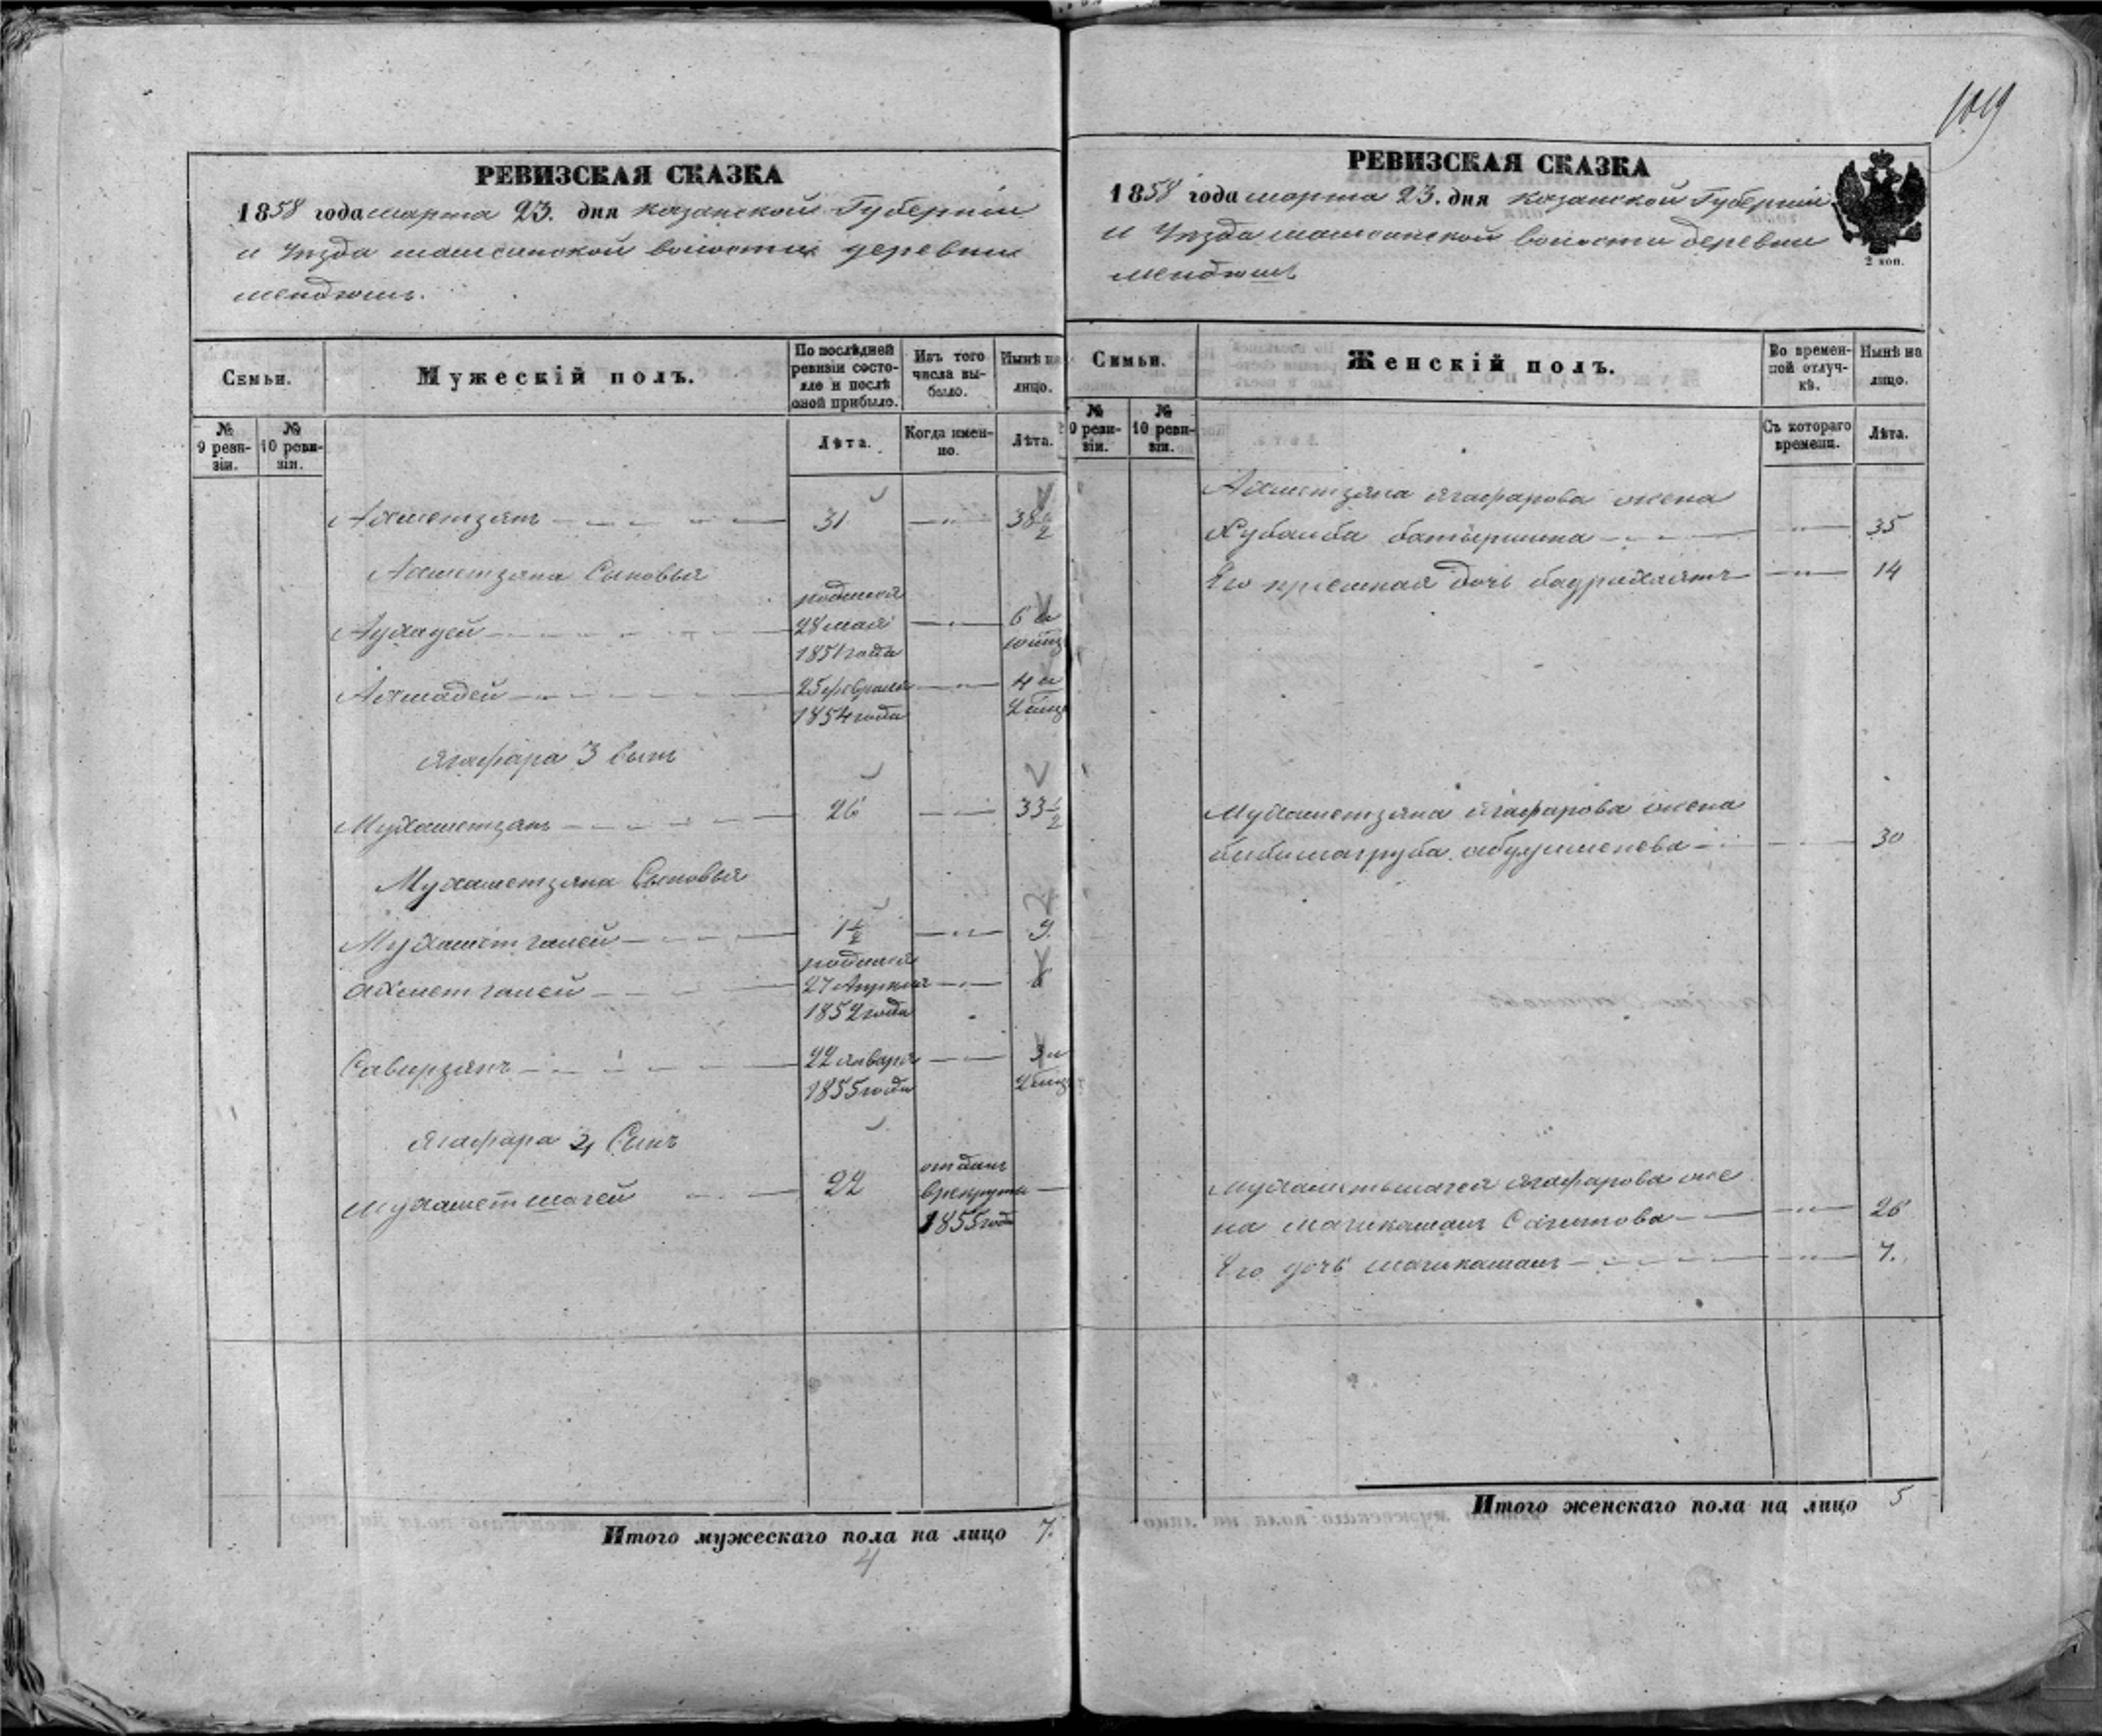 109
РЕВИЗСКАЯ СКАЗКА
1858 года марта 23. дня казанской Губернiи
и Уезда машсинской волости деревни
мендюшъ.
Семьи.
Мужескiй полъ.
По послѣдней ревизiи состояло и послѣ оной прибыло.
Изъ того числа выбыло.
Нынѣ на лицо.
№ 9 ревизiи.
№ 10 ревизiи.
Лѣта.
Когда именно.
Лѣта.
Ахметзянъ 31 38 1/2
Ахметзяна Сыновья
родился
28 мая 6 и
1851 года
Ахмадей 25 февраля 4 и
1854 года
Ягафара 3 сынъ
Мухаметзянъ 26 33 1/2
Мухаметзяна Сыновья
Мухаметгалей 1 1/2 9.
родился
ахметгалей 27 Апреля 6
1852 года
Сабирзянъ 22 января 3 и
1855 года
Ягафара 4 Сынъ
отданъ
Мухаметшагей 22 врекруты
1855 года
Итого мужескаго пола на лицо 7.
4
РЕВИЗСКАЯ СКАЗКА
1858 года марта 23. дня казанской Губернiи
и Уезда машсинской волости деревни
мендюшъ
2 коп.
Семьи.
Женскiй полъ.
Во временной отлучкѣ.
Нынѣ на лицо.
№ 9 ревизiи.
№ 10 ревизiи.
Съ котораго времени.
Лѣта.
Ахметзяна ягафарова жена
Хубаиба батыршина 35
Его приемная дочь бадрихаятъ 14
Мухаметзяна ягафарова жена
30
Мухаметшагея ягафарова же
на Сагитова 26
Его дочь 7.
Итого женскаго пола на лицо 5